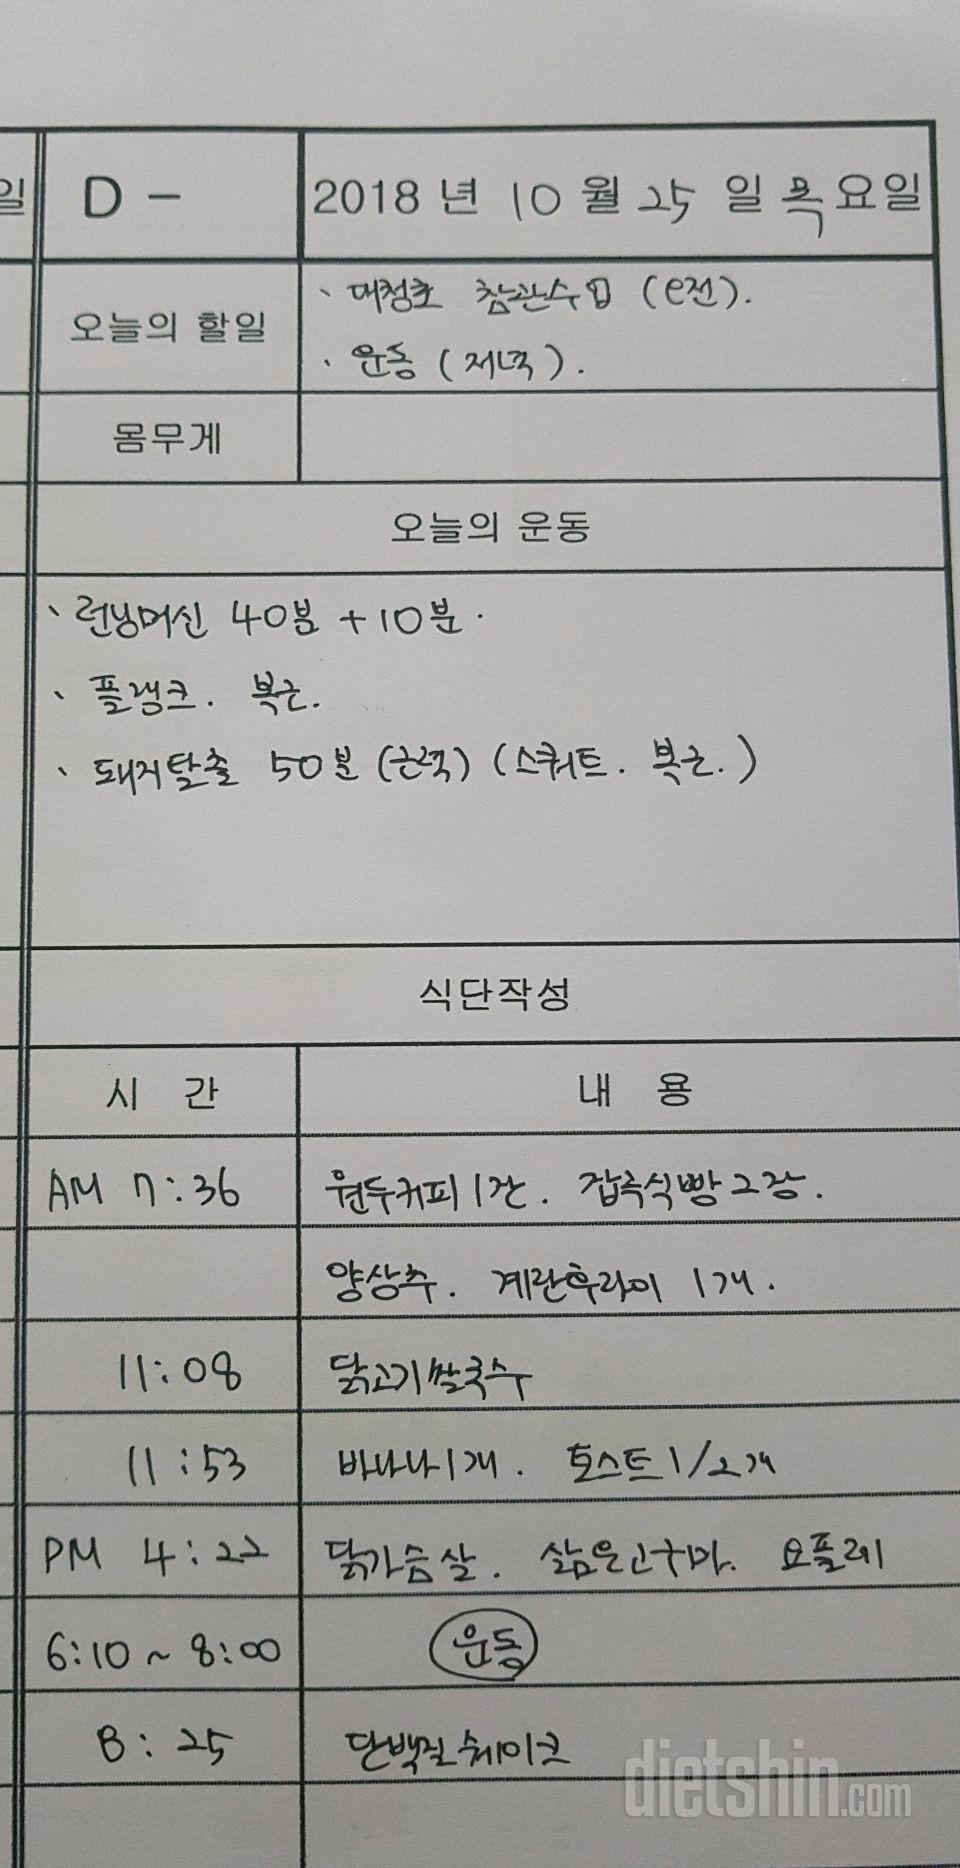 일
D -
2018 년 10 월 25 일 목 요일
오늘의 할일
· 대청초 참관수업 (오전).
· 운동 (저녁).
몸무게
오늘의 운동
· 런닝머신 40분 + 10분.
· 플랭크. 복근.
· 돼지탈출 50분 (근력) (스쿼트. 복근.)
식단작성
시 간 내 용
AM 7:36 원두커피 1잔. 잡곡식빵 2장.
양상추. 계란후라이 1개.
11:08 닭고기쌀국수
11:53 바나나 1개. 토스트 1/2개
PM 4:22 닭가슴살. 삶은고구마. 요플레
6:10 ~ 8:00 운동
8:25 단백질쉐이크
dietshin.com